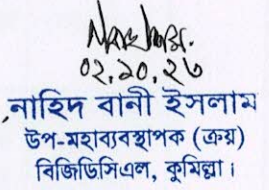 ০২.১০.২৩
নাহিদ বানী ইসলাম
উপ-মহাব্যবস্থাপক (ক্রয়)
বিজিডিসিএল, কুমিল্লা।